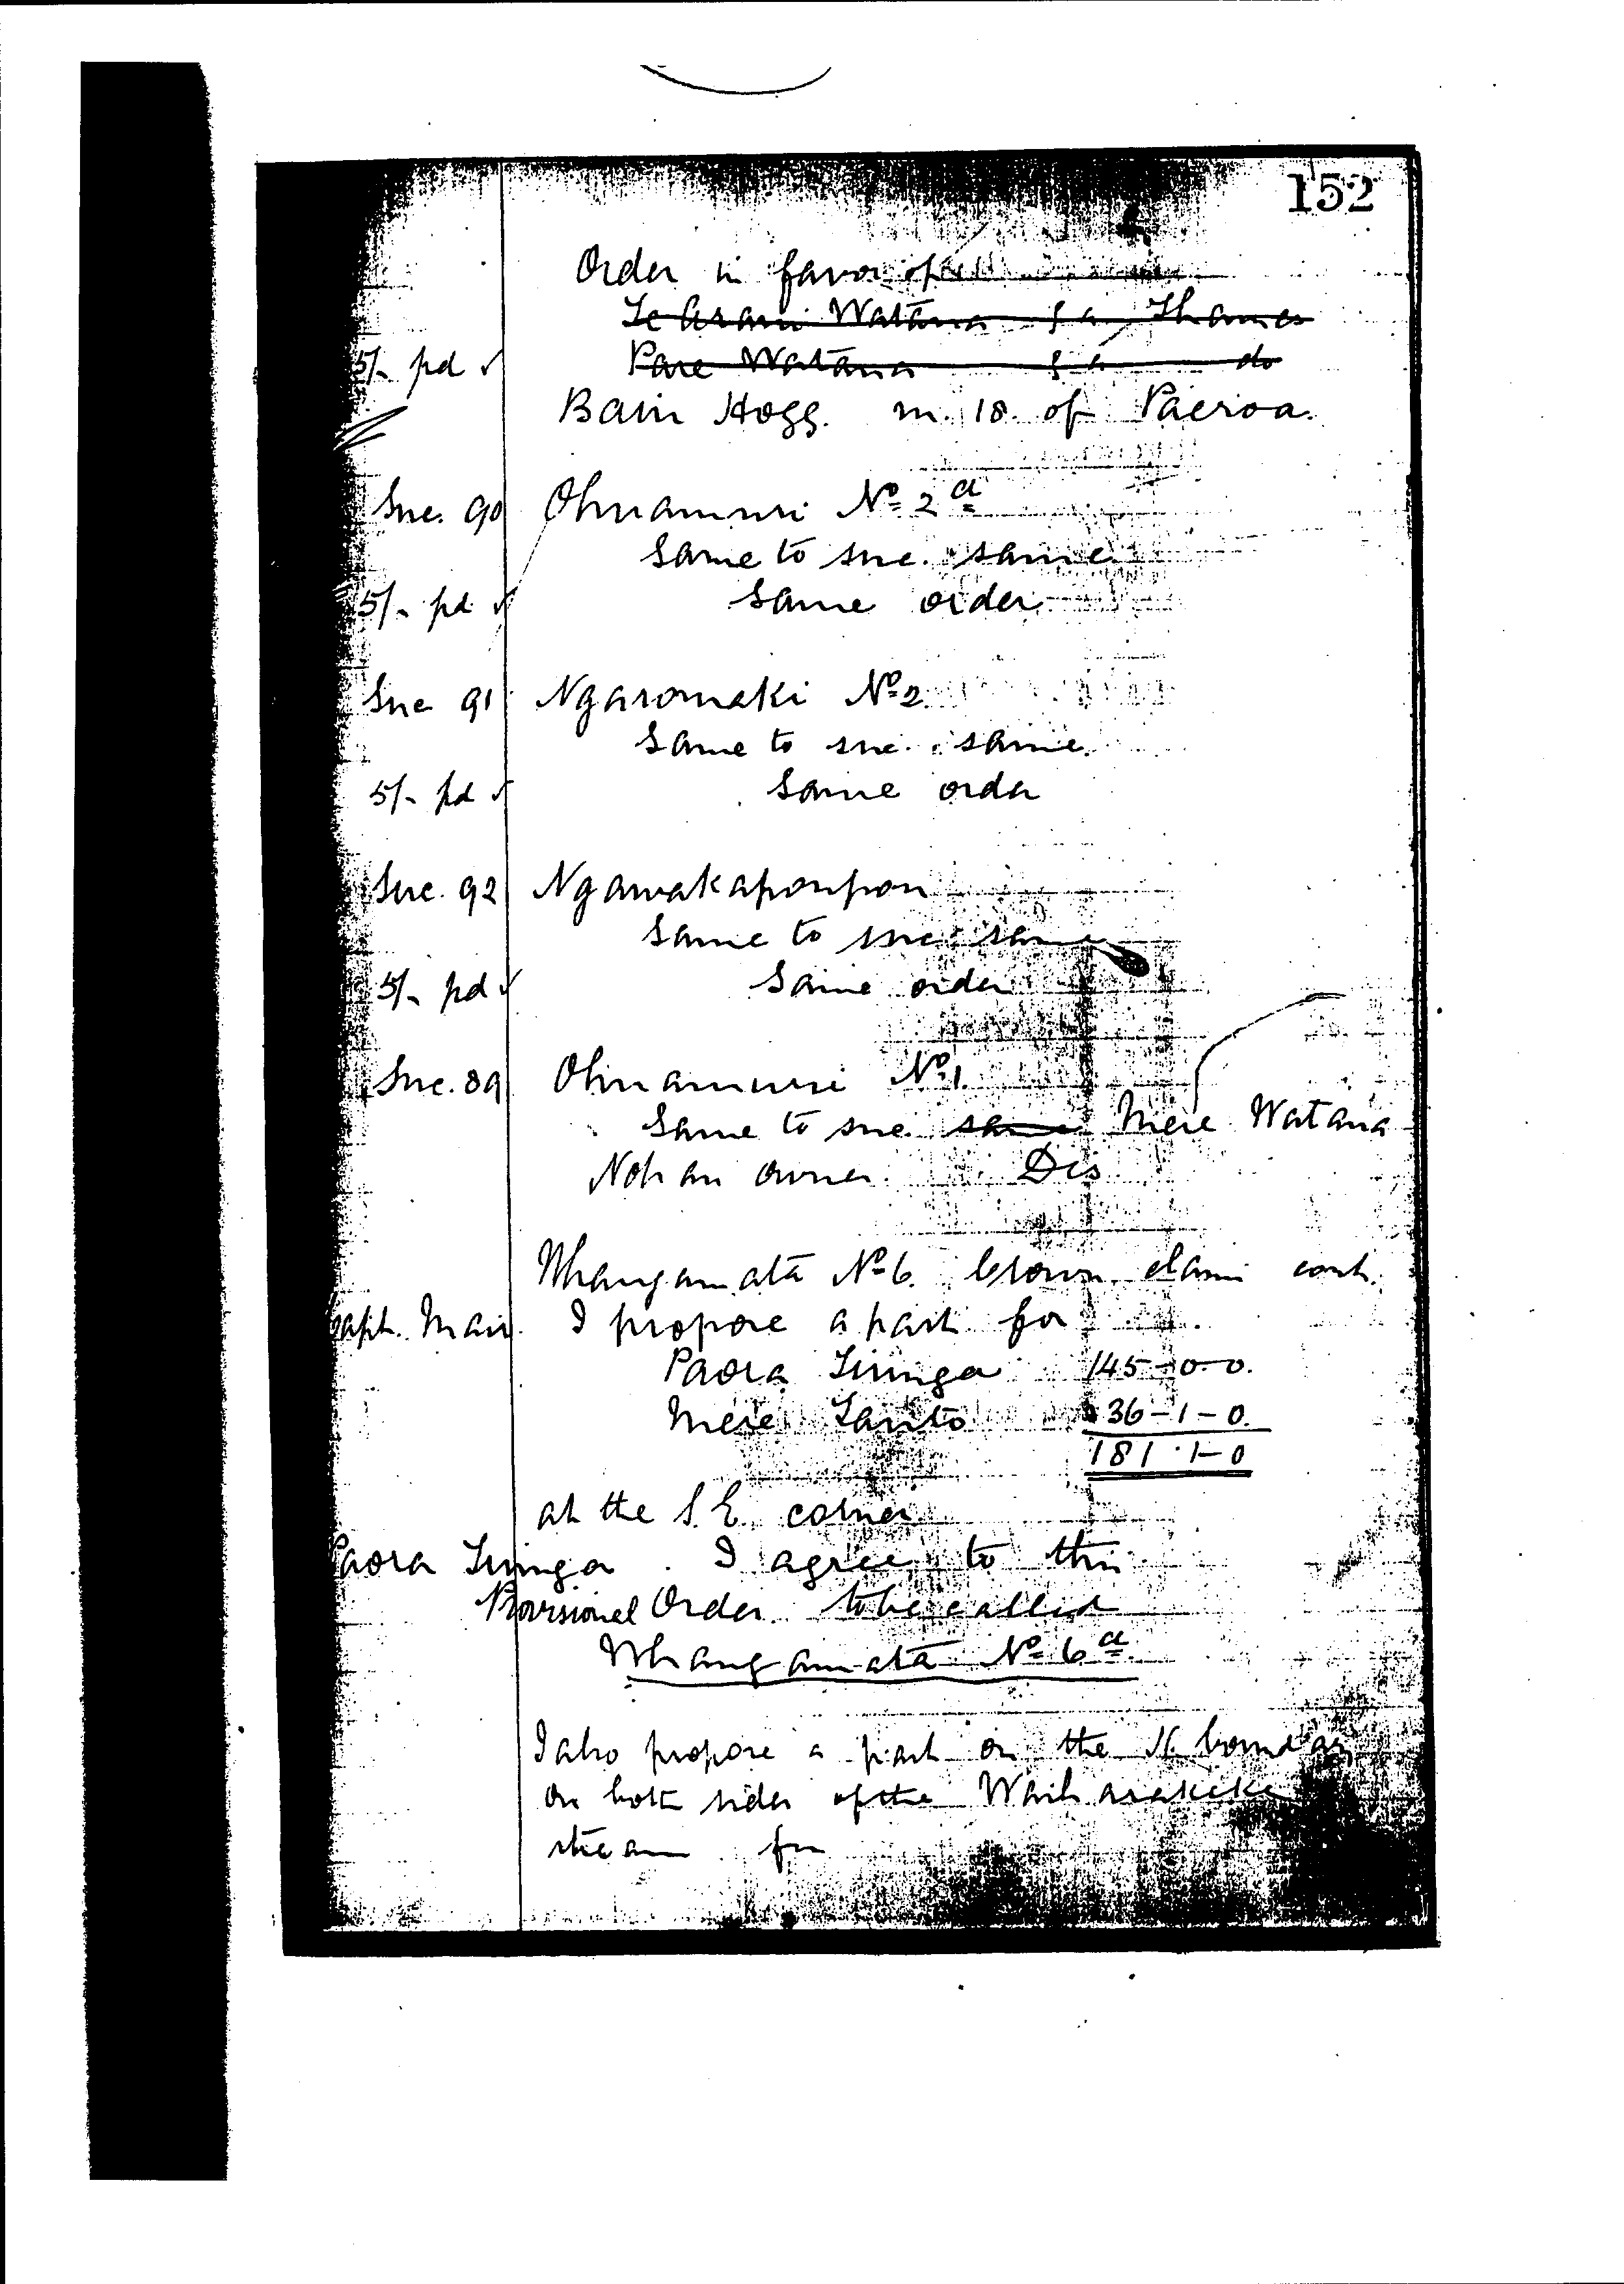 152
Order in favor of
Te Arani Watana f a Thames
5/- pd ✓ Pare Watana f a do
Bain Hogg. m. 18. of Paeroa.
Suc. 90 Ohuamuri No 2a
Same to suc. same
5/- pd ✓ Same order
Suc 91 Ngaromaki No 2
Same to suc. same.
5/- pd ✓ Same order
Suc. 92 Ngawakapoupou
Same to suc. same
5/- pd ✓ Same order
Suc. 89 Ohuamuri No 1.
Same to suc. same Mere Watana
Not an owner. Dis
Whangamata No 6. Crown claim cont.
Capt. Mair. I propose a part for
Paora Tiunga 145-0-0.
Mere Tauto 36-1-0.
181-1-0
at the S.E. corner
Paora Tiunga. I agree to this
Provisional Order to be called
Whangamata No 6a
I also propose a part on the N. boundary
on both sides of the Waiharakeke
stream for